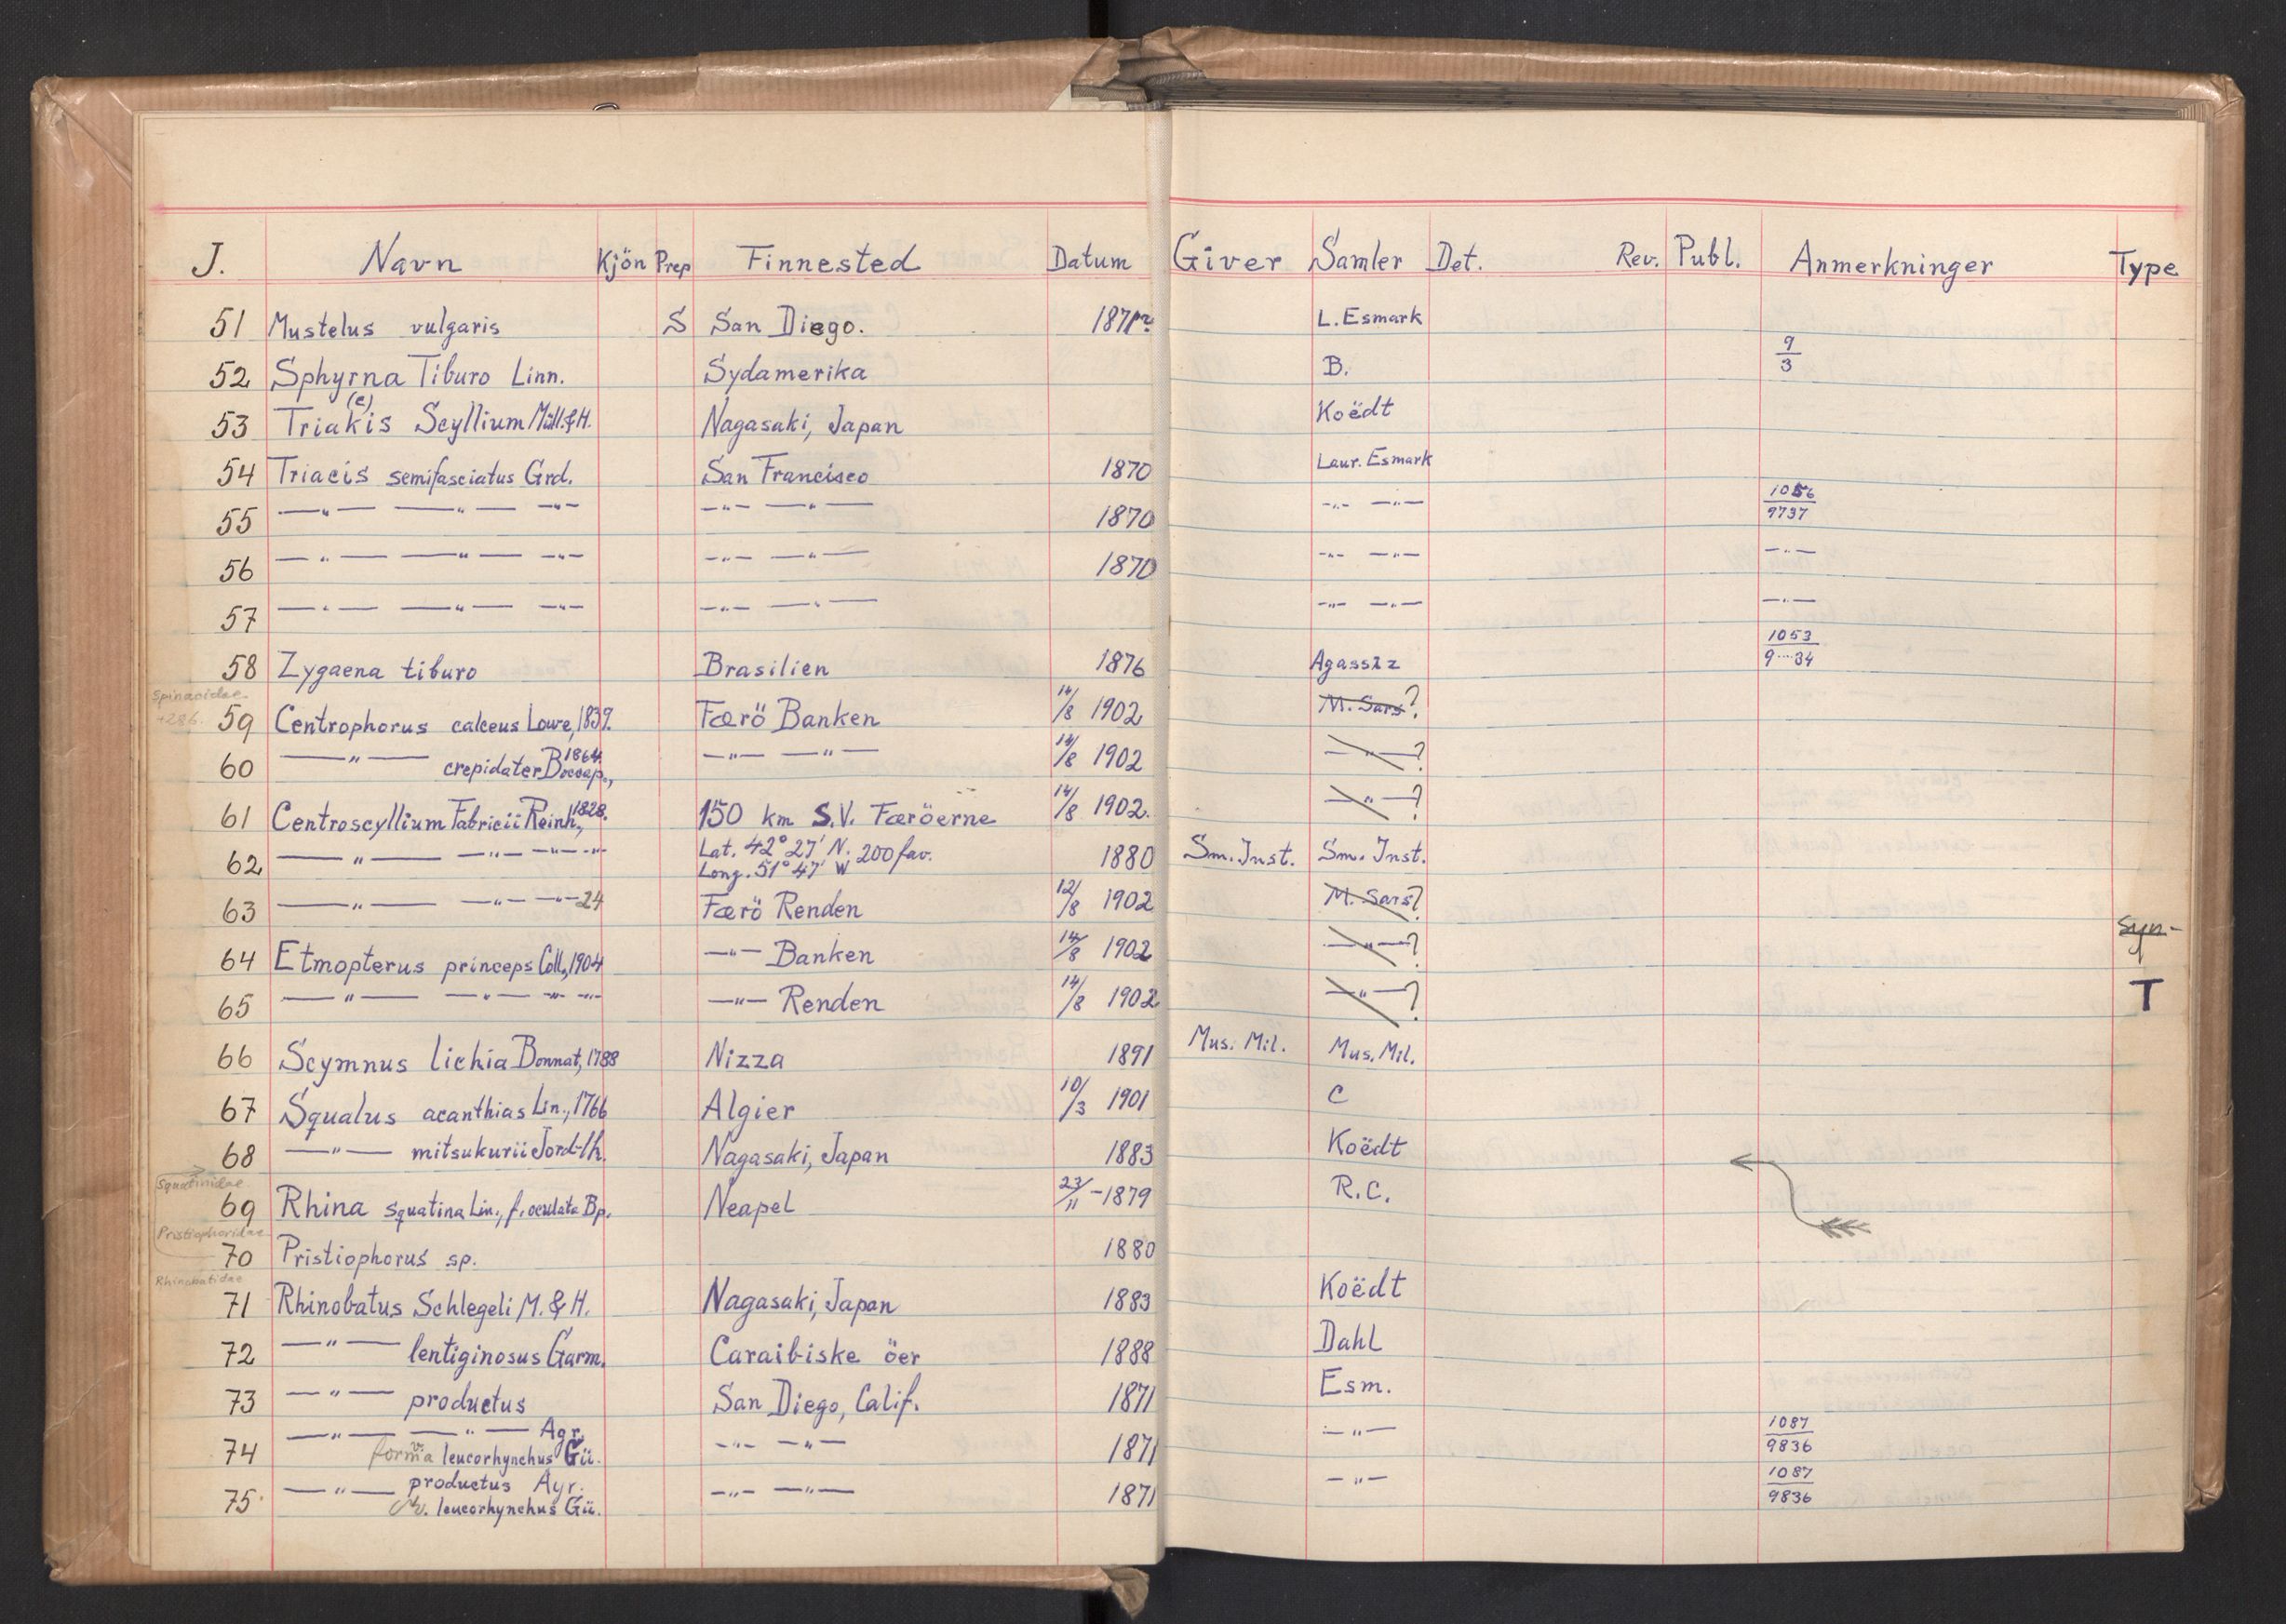 J. Navn Kjön Prep Finnested Datum Giver Samler Det. Rev. Publ. Anmerkninger Type
51 Mustelus vulgaris S San Diego. 1871? L. Esmark
52 Sphyrna Tiburo Linn. Sydamerika B. 9/3
53 Triakis (c) Scyllium Müll.&H. Nagasaki, Japan Koëdt
54 Triacis semifasciatus Grd. San Francisco 1870 Laur. Esmark
55 —"— —"— —"— —"— —"— 1870 —"— —"— 1056/9737
56 —"— —"— —"— —"— —"— 1870 —"— —"— —"—
57 —"— —"— —"— —"— —"— —"— —"— —"—
58 Zygaena tiburo Brasilien 1876 Agassiz 1053/9....34
Spinacidae
+286. 59 Centrophorus calceus Lowe, 1839. Færö Banken 14/8 1902 M. Sars?
60 —"— crepidater Bocap., 1864. —"— —"— 14/8 1902 —"—?
61 Centroscyllium Fabricii Reinh., 1828. 150 km S.V. Færöerne 14/8 1902. —"—?
62 —"— —"— —"— —"— Lat. 42° 27' N. 200 fav. 1880 Sm. Inst. Sm. Inst.
Long. 51° 47' W
63 —"— —"— —"— 24 Færö Renden 12/8 1902 M. Sars?
64 Etmopterus princeps Coll., 1904 —"— Banken 14/8 1902 —"—? Syn-
65 —"— —"— —"— —"— —"— Renden 14/8 1902 —"—? T
66 Scymnus lichia Bonnat, 1788 Nizza 1891 Mus. Mil. Mus. Mil.
67 Squalus acanthias Lin., 1766 Algier 10/3 1901 C
68 —"— mitsukurii Jord Nagasaki, Japan 1883 Koëdt
Squatinidae
69 Rhina squatina Lin., f. oculata Bp. Neapel 23/11 - 1879 R.C.
Pristiophoridae
70 Pristiophorus sp. 1880
Rhinobatidae
71 Rhinobatus Schlegeli M. & H. Nagasaki, Japan 1883 Koëdt
72 —"— lentiginosus Garm. Caraibiske öer 1888 Dahl
73 —"— productus San Diego, Calif. 1871 Esm.
74 —"— —"— Agr. —"— —"— 1871 —"— 1087/9836
forma v. leucorhynchus Gü.
75 —"— productus Ayr. —"— —"— 1871 —"— 1087/9836
v. leucorhynchus Gü.